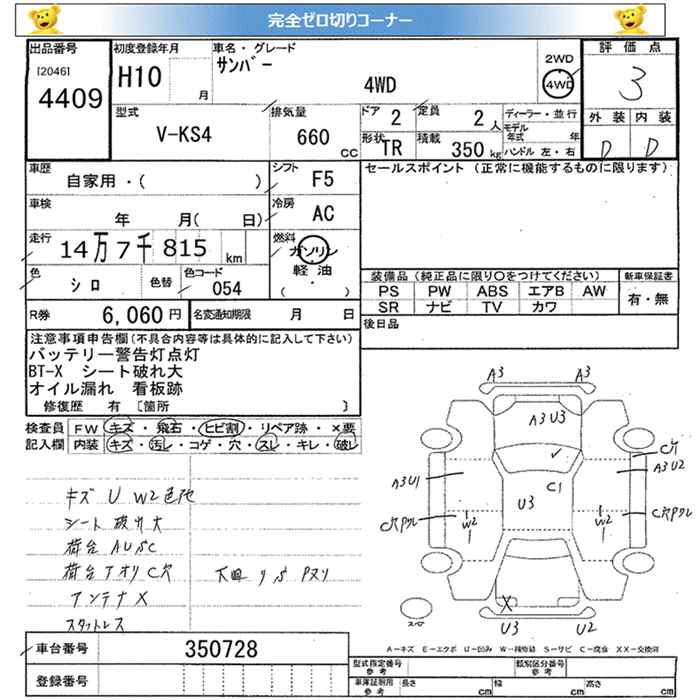 完全ゼロ切りコーナー
出品番号 初度登録年月 車名・グレード 2WD 評価点
[2046] H10 サンバー 4WD 4WD 3
4409 月
型式 排気量 ドア 2 定員 2人 ディーラー・並行 外装 内装
V-KS4 660 CC 形状 TR 積載 350 kg モデル年式 年 D D
ハンドル 左・右
車歴 自家用・( ) シフト F5 セールスポイント(正常に機能するものに限ります)
車検 年 月( 日) 冷房 AC
走行 14万7千815 km 燃料 ガソリン
軽油
( ・ )
色 シロ 色替 色コード 054 装備品(純正品に限り○をつけてください) 新車保証書
PS PW ABS エアB AW 有・無
SR ナビ TV カワ
R券 6,060円 名変通知期限 月 日 後日品
注意事項申告欄(不具合内容等は具体的に記入して下さい)
バッテリー警告灯点灯
BT-X シート破れ大
オイル漏れ 看板跡
修復歴 有 〔箇所 〕
検査員 FW キズ・飛石・ヒビ割・リペア跡・×要
記入欄 内装 キズ・汚レ・コゲ・穴・スレ・キレ・破レ
キズ U W2 色地
シート 破れ大
荷台 AUSC
荷台アオリ C穴 下回り S Pヌリ
アンテナX
スタットレス
A3 A3
A3 U3
C1
A3U1 A3U2
U3 C1
C穴Pクレ W2 W2 C穴Pクレ
X
U3 U2
スペア
A-キズ E-エクボ U-凹み W-補修跡 S-サビ C-腐食 XX-交換済
車台番号 350728
登録番号
型式指定番号 参考 類別区分番号 参考
車庫証明用 参考 長さ cm 幅 cm 高さ cm